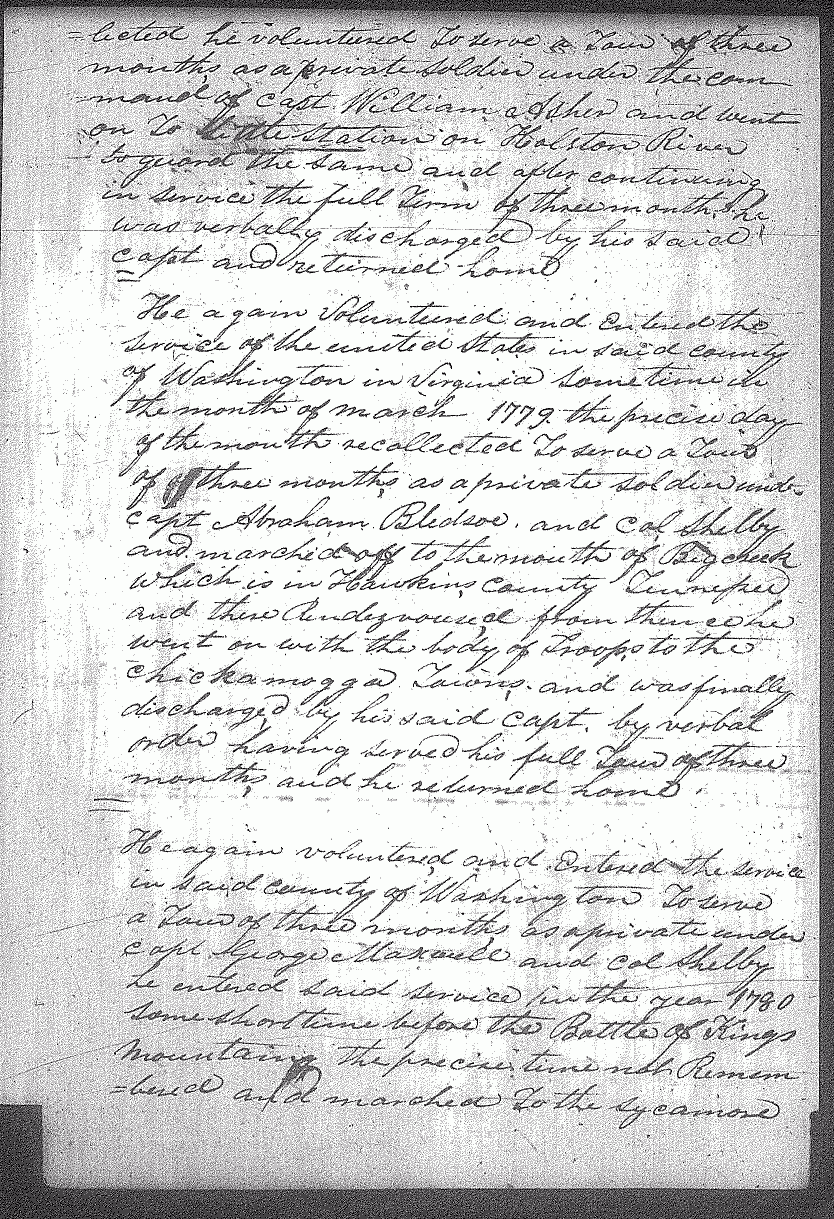 =lected he voluntered To serve a Tour of three
months as a private soldier under the com
=mand of Capt William Asher and went
on To Station on Holston River
to guard the same and after continuing
in service the full Term of three months he
was verbally discharged by his said
capt and returned home
He again Voluntered and Entered the
service of the united States in said county
of Washington in Virginia some time in
the month of march 1779. the precise day
of the month recollected To serve a Tour
of three months as a private soldier und.
capt Abraham Bledsoe. and Col Shelby
and marched off to the mouth of Big creek
which is in Hawkins county Tennessee
and there Rendezvoused from thence he
went on with the body of Troops to the
chickamogga Towns. and was finally
discharged by his said Capt. by verbal
order having served his full Tour of three
months, and he returned home.
He again voluntered and Entered the service
in said county of Washington To serve
a Tour of three months as a private under
capt George Maxwell and Col Shelby
he entered said service in the year 1780
some short time before the Battle of Kings
mountain the precise time not Remem
=bered and marched To the Sycamore